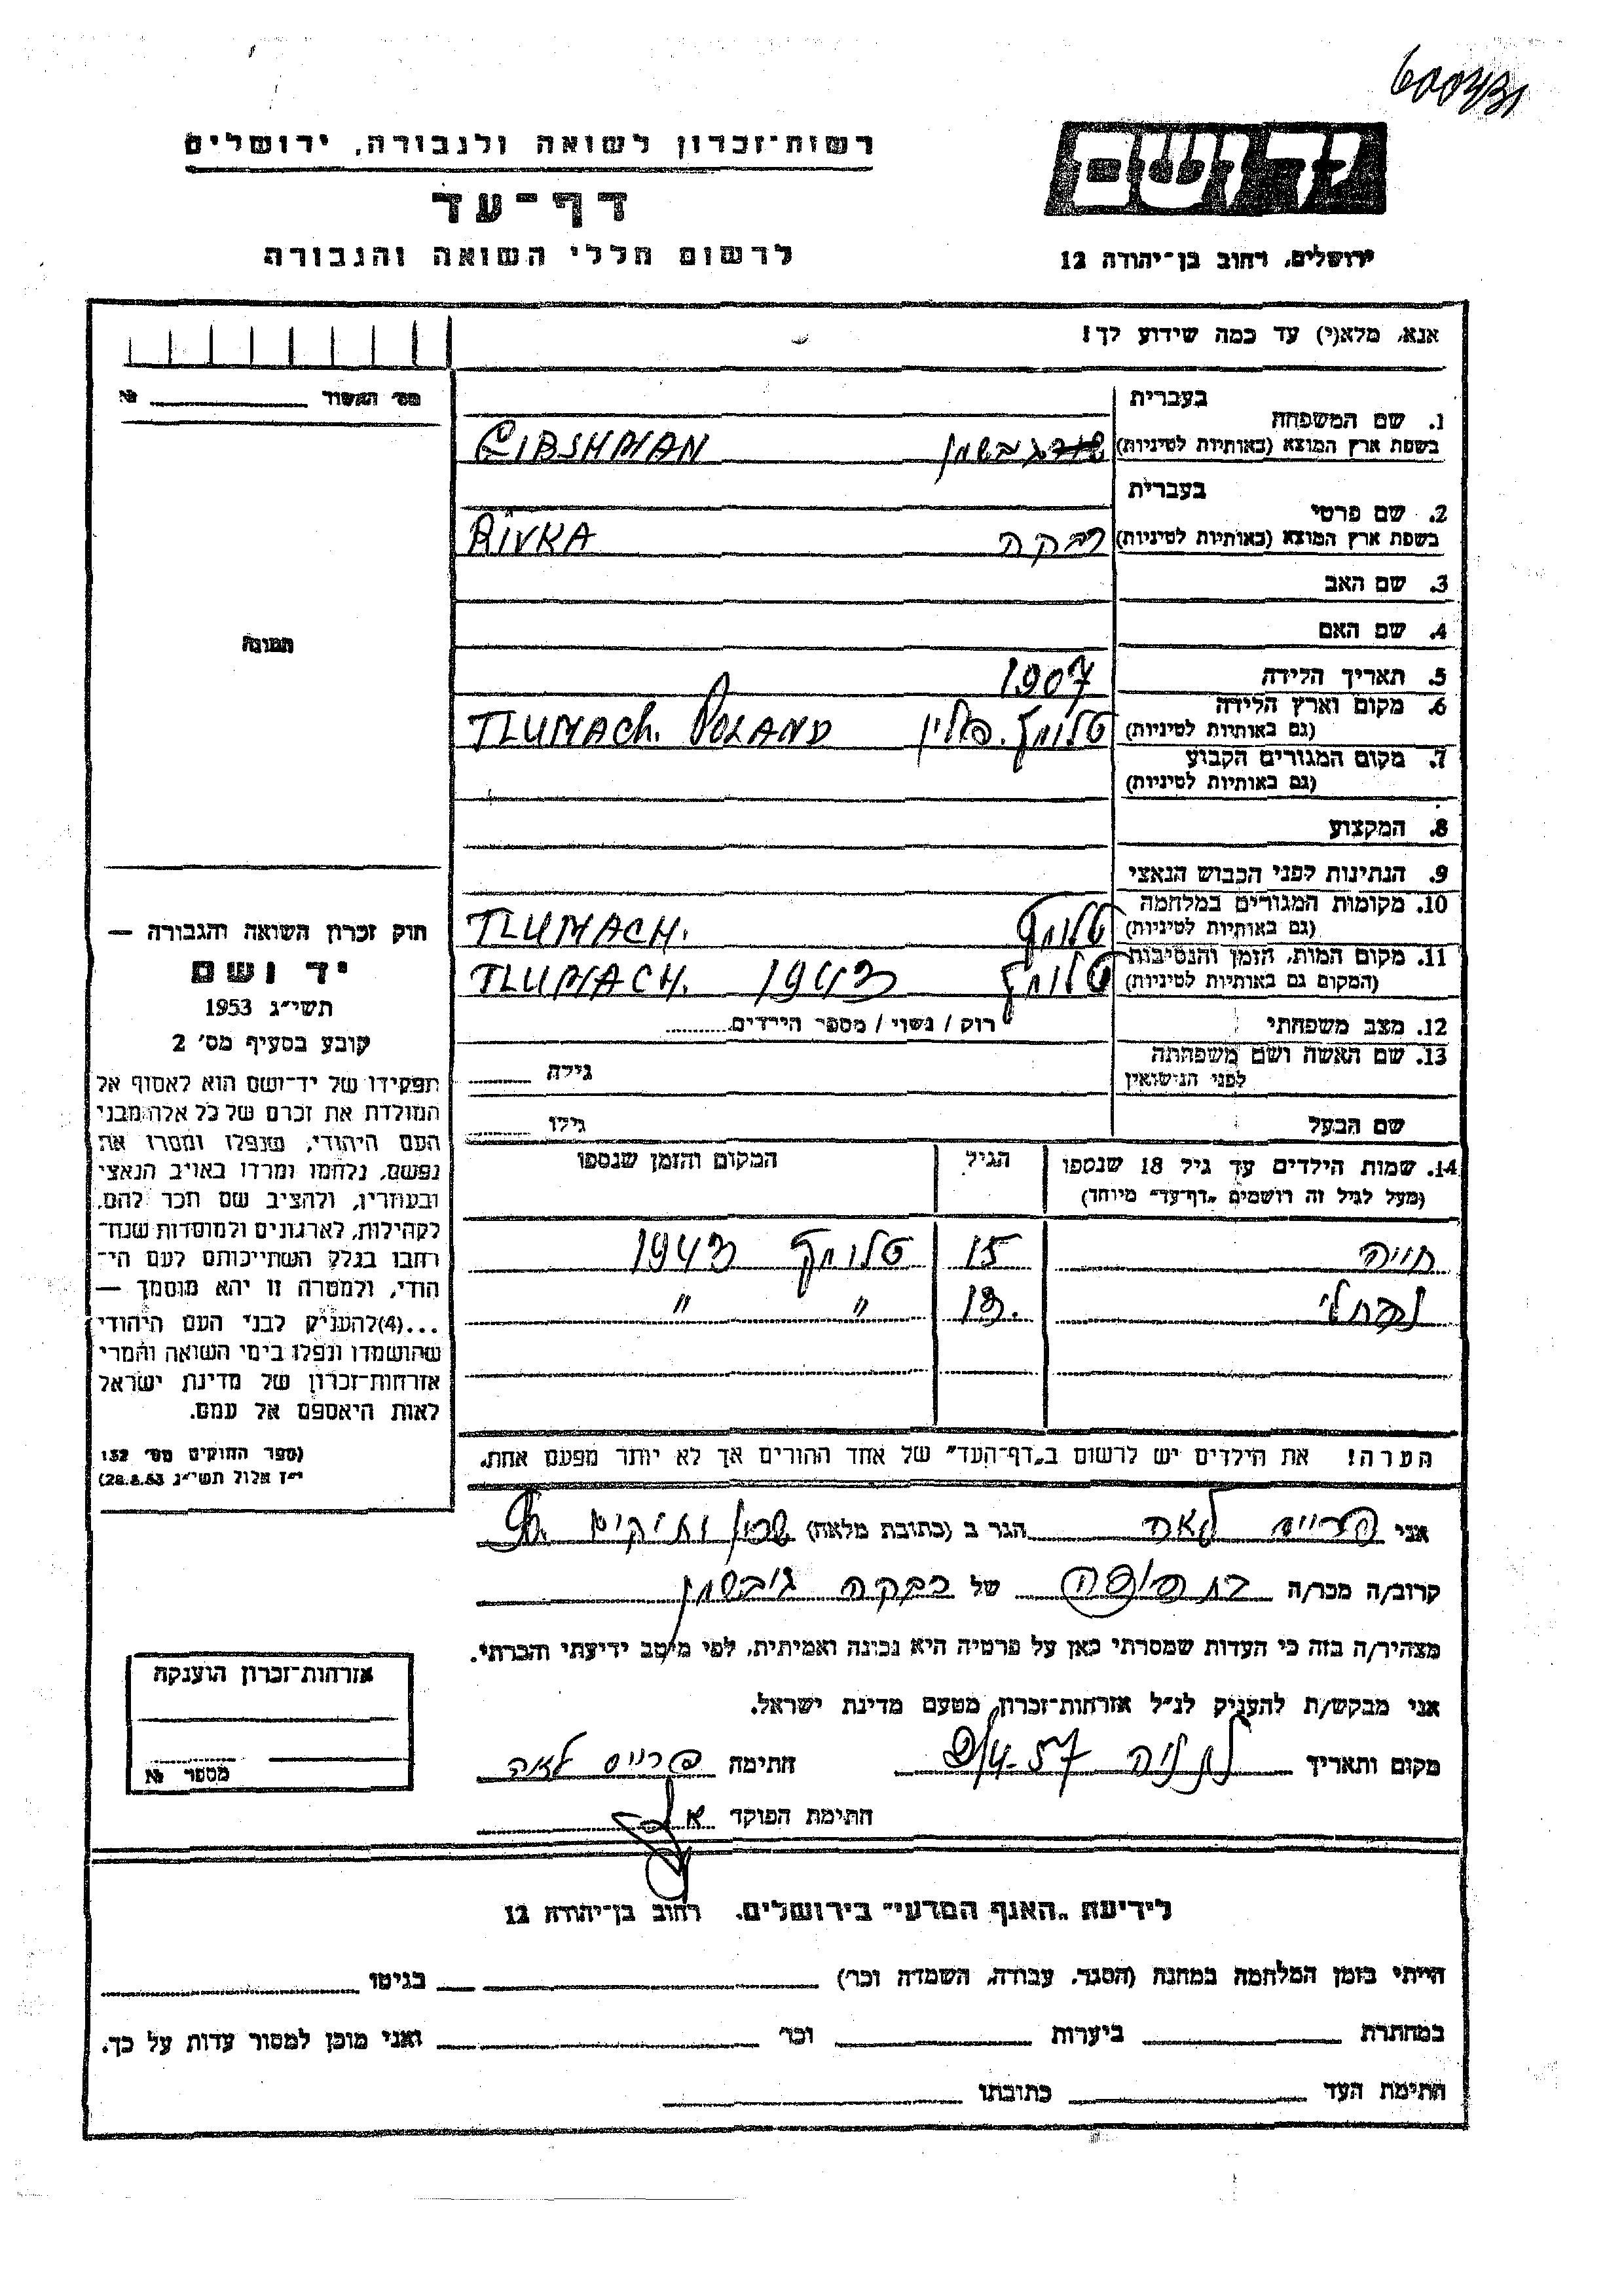 רשות־זכרון לשואה ולגבורה, ירושלים
דף־עד
לרשום חללי השואה והגבורה
יד ושם
ירושלים, רחוב בן־יהודה 12
אנא, מלא(י) עד כמה שידוע לך!
מס' האשור № 
בעברית
1. שם המשפחה
בשפת ארץ המוצא (באותיות לטיניות) גבשמן GIBSHMAN
בעברית
2. שם פרטי
בשפת ארץ המוצא (באותיות לטיניות) רבקה RIVKA
3. שם האב
4. שם האם
5. תאריך הלידה 1907
6. מקום וארץ הלידה
(גם באותיות לטיניות) טלומץ. פולין TLUMACH. POLAND
7. מקום המגורים הקבוע
(גם באותיות לטיניות)
8. המקצוע
9. הנתינות לפני הכבוש הנאצי
10. מקומות המגורים במלחמה
(גם באותיות לטיניות) טלומץ TLUMACH.
11. מקום המות, הזמן והנסיבות
(המקום גם באותיות לטיניות) טלומץ TLUMACH. 1943
12. מצב משפחתי רוק / נשוי / מספר הילדים
13. שם האשה ושם משפחתה
לפני הנישואין גילה
שם הבעל גילו
14. שמות הילדים עד גיל 18 שנספו הגיל המקום והזמן שנספו
(מעל לגיל זה רושמים „דף־עד" מיוחד)
חייה 15 טלומץ 1943
13. " "
הערה! את הילדים יש לרשום ב„דף־העד" של אחד ההורים אך לא יותר מפעם אחת.
תמונה
חוק זכרון השואה והגבורה —
יד ושם
תשי"ג 1953
קובע בסעיף מס' 2
תפקידו של יד־ושם הוא לאסוף אל
המולדת את זכרם של כל אלה מבני
העם היהודי, שנפלו ומסרו את
נפשם, נלחמו ומרדו באויב הנאצי
ובעוזריו, ולהציב שם וזכר להם,
לקהילות, לארגונים ולמוסדות שנח־
רחבו בגלל השתייכותם לעם הי־
הודי, ולמטרה זו יהא מוסמך —
...(4)להעניק לבני העם היהודי
שהושמדו ונפלו בימי השואה והמרי
אזרחות־זכרון של מדינת ישראל
לאות היאספם אל עמם.
(ספר החוקים מס' 132
י"ז אלול תשי"ג 28.8.53)
אני פרייס לאה הגר ב (כתובת מלאה) שכון ותיקים
קרוב/ה מכר/ה בת דודה של רבקה גיבשמן
מצהיר/ה בזה כי העדות שמסרתי כאן על פרטיה היא נכונה ואמיתית, לפי מיטב ידיעתי והכרתי.
אני מבקש/ת להעניק לנ"ל אזרחות־זכרון מטעם מדינת ישראל.
מקום ותאריך נתניה חתימה פרייס לאה
חתימת הפוקד
אזרחות־זכרון הוענקה
מספר №
לידיעת „האגף המדעי" בירושלים. רחוב בן־יהודה 12
הייתי בזמן המלחמה במחנה (הסגר, עבודה, השמדה וכו') בגיטו
במחתרת ביערות וכו' ואני מוכן למסור עדות על כך.
חתימת העד כתובתו